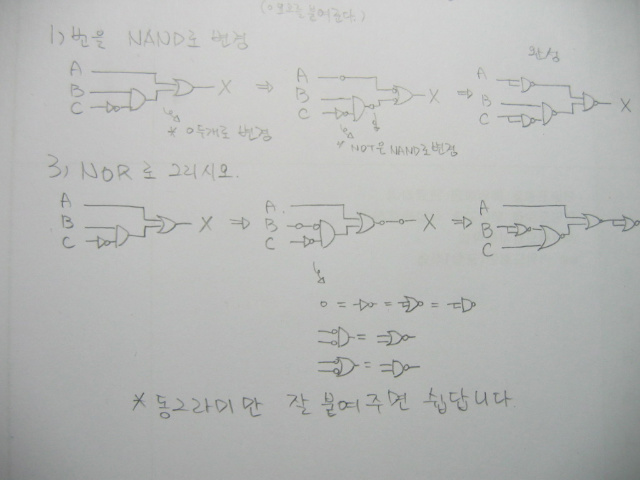 (아랫것을 붙여준다.)
1) 번을 NAND로 변경
완성
A
B
C
X
⇒
A
B
C
X
⇒
A
B
C
X
* 0 두개로 변경
* NOT은 NAND로 변경
3) NOR로 그리시오.
A
B
C
X
⇒
A
B
C
X
⇒
A
B
C
= = =
=
=
* 동그라미만 잘 붙여주면 쉽답니다